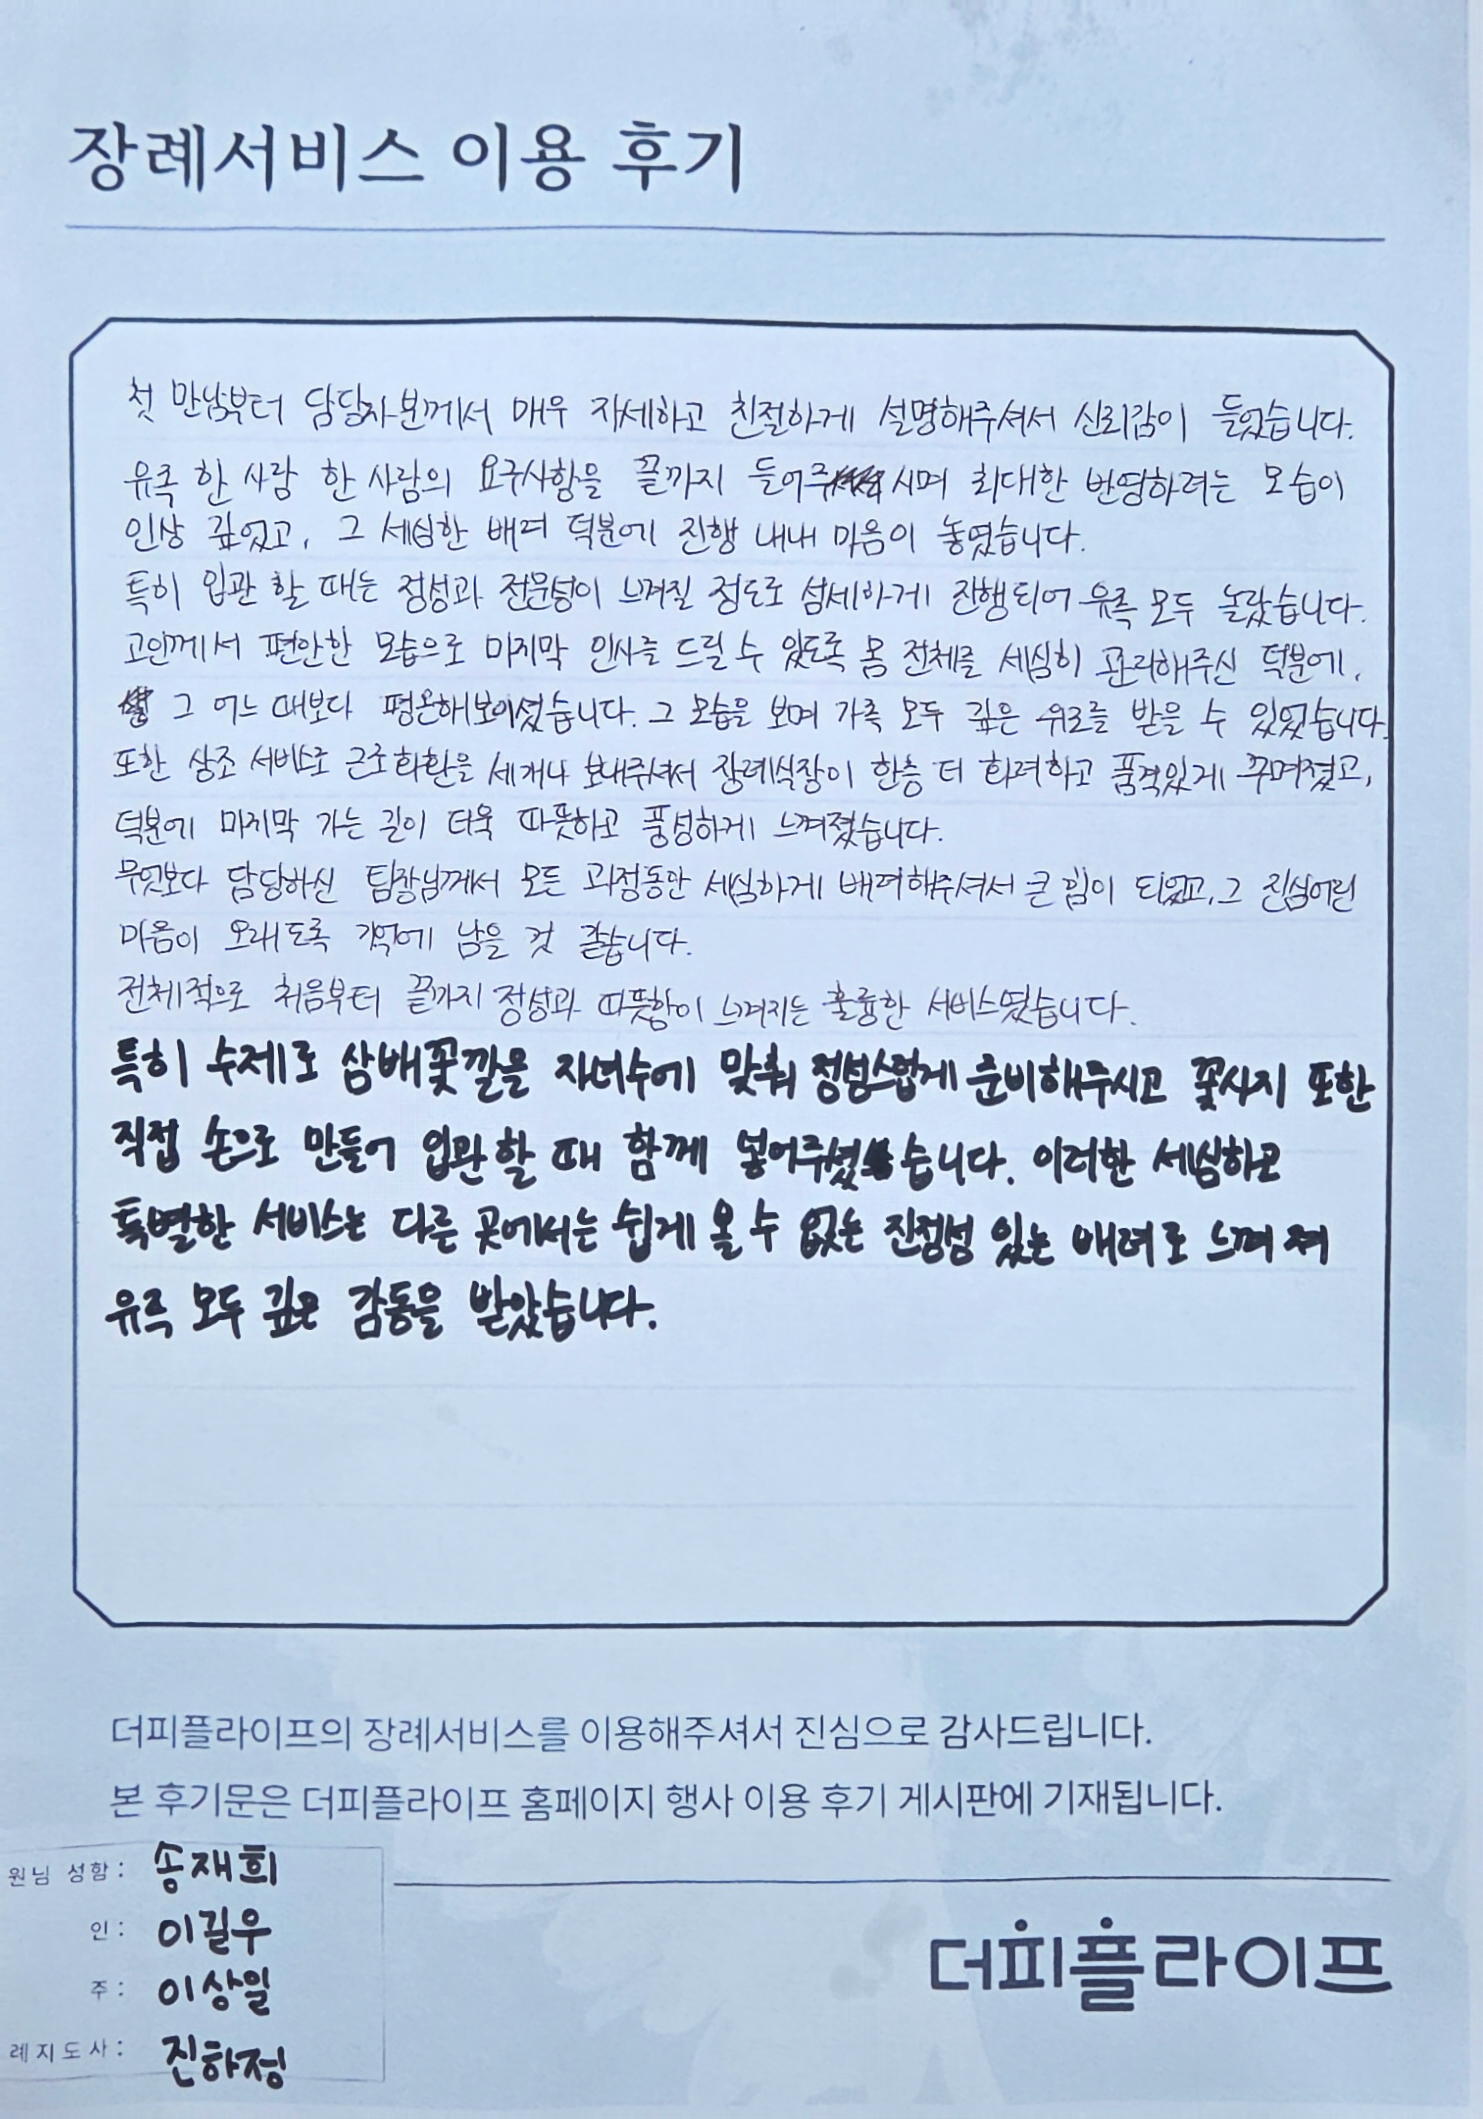 장례서비스 이용 후기
첫 만남부터 담당자분께서 매우 자세하고 친절하게 설명해주셔서 신뢰감이 들었습니다.
유족 한 사람 한 사람의 요구사항을 끝까지 들어주시며 최대한 반영하려는 모습이
인상 깊었고, 그 세심한 배려 덕분에 진행 내내 마음이 놓였습니다.
특히 입관 할 때는 정성과 전문성이 느껴질 정도로 섬세하게 진행되어 유족 모두 놀랐습니다.
고인께서 편안한 모습으로 마지막 인사를 드릴 수 있도록 몸 전체를 세심히 관리해주신 덕분에,
그 어느 때보다 평온해보이셨습니다. 그 모습을 보며 가족 모두 깊은 위로를 받을 수 있었습니다.
또한 상조 서비스로 근조화환을 세개나 보내주셔서 장례식장이 한층 더 화려하고 품격있게 꾸며졌고,
덕분에 마지막 가는 길이 더욱 따뜻하고 풍성하게 느껴졌습니다.
무엇보다 담당하신 팀장님께서 모든 과정동안 세심하게 배려해주셔서 큰 힘이 되었고, 그 진심어린
마음이 오래도록 기억에 남을 것 같습니다.
전체적으로 처음부터 끝까지 정성과 따뜻함이 느껴지는 훌륭한 서비스였습니다.
특히 수제로 삼배꽃깔을 자녀수에 맞춰 정성스럽게 준비해주시고 꽃사지 또한
직접 손으로 만들어 입관 할 때 함께 넣어주셨습니다. 이러한 세심하고
특별한 서비스는 다른 곳에서는 쉽게 올 수 없는 진정성 있는 배려로 느껴져
유족 모두 깊은 감동을 받았습니다.
더피플라이프의 장례서비스를 이용해주셔서 진심으로 감사드립니다.
본 후기문은 더피플라이프 홈페이지 행사 이용 후기 게시판에 기재됩니다.
원님 성함: 송재희
인: 이길우
주: 이상일
례지도사: 진하정
더피플라이프